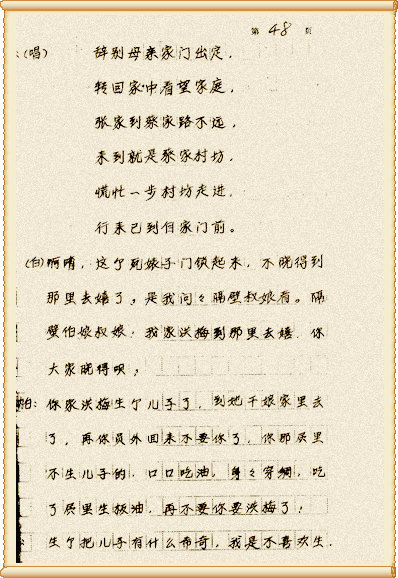 第 48 页
:(唱) 辞别母亲家门出定,
转回家中看望家庭,
张家到蔡家路不远,
来到就是蔡家村坊,
慌忙一步村坊走进,
行来已到自家门前。
(白)啊唷,这个死娘子门锁起来,不晓得到
那里去嬉了;是我问々隔壁叔娘看。隔
壁伯娘叔娘:我家洪梅到那里去嬉.你
大家晓得呗;
帕:你家洪梅生个儿子了,到她干娘家里去
了,再你员外回来不要你了,你那屄里
不生儿子的,口口吃油,身々穿绸,吃
了屄里生板油,再不要你要洪梅了;
生个把儿子有什么希奇,我是不喜欢生.